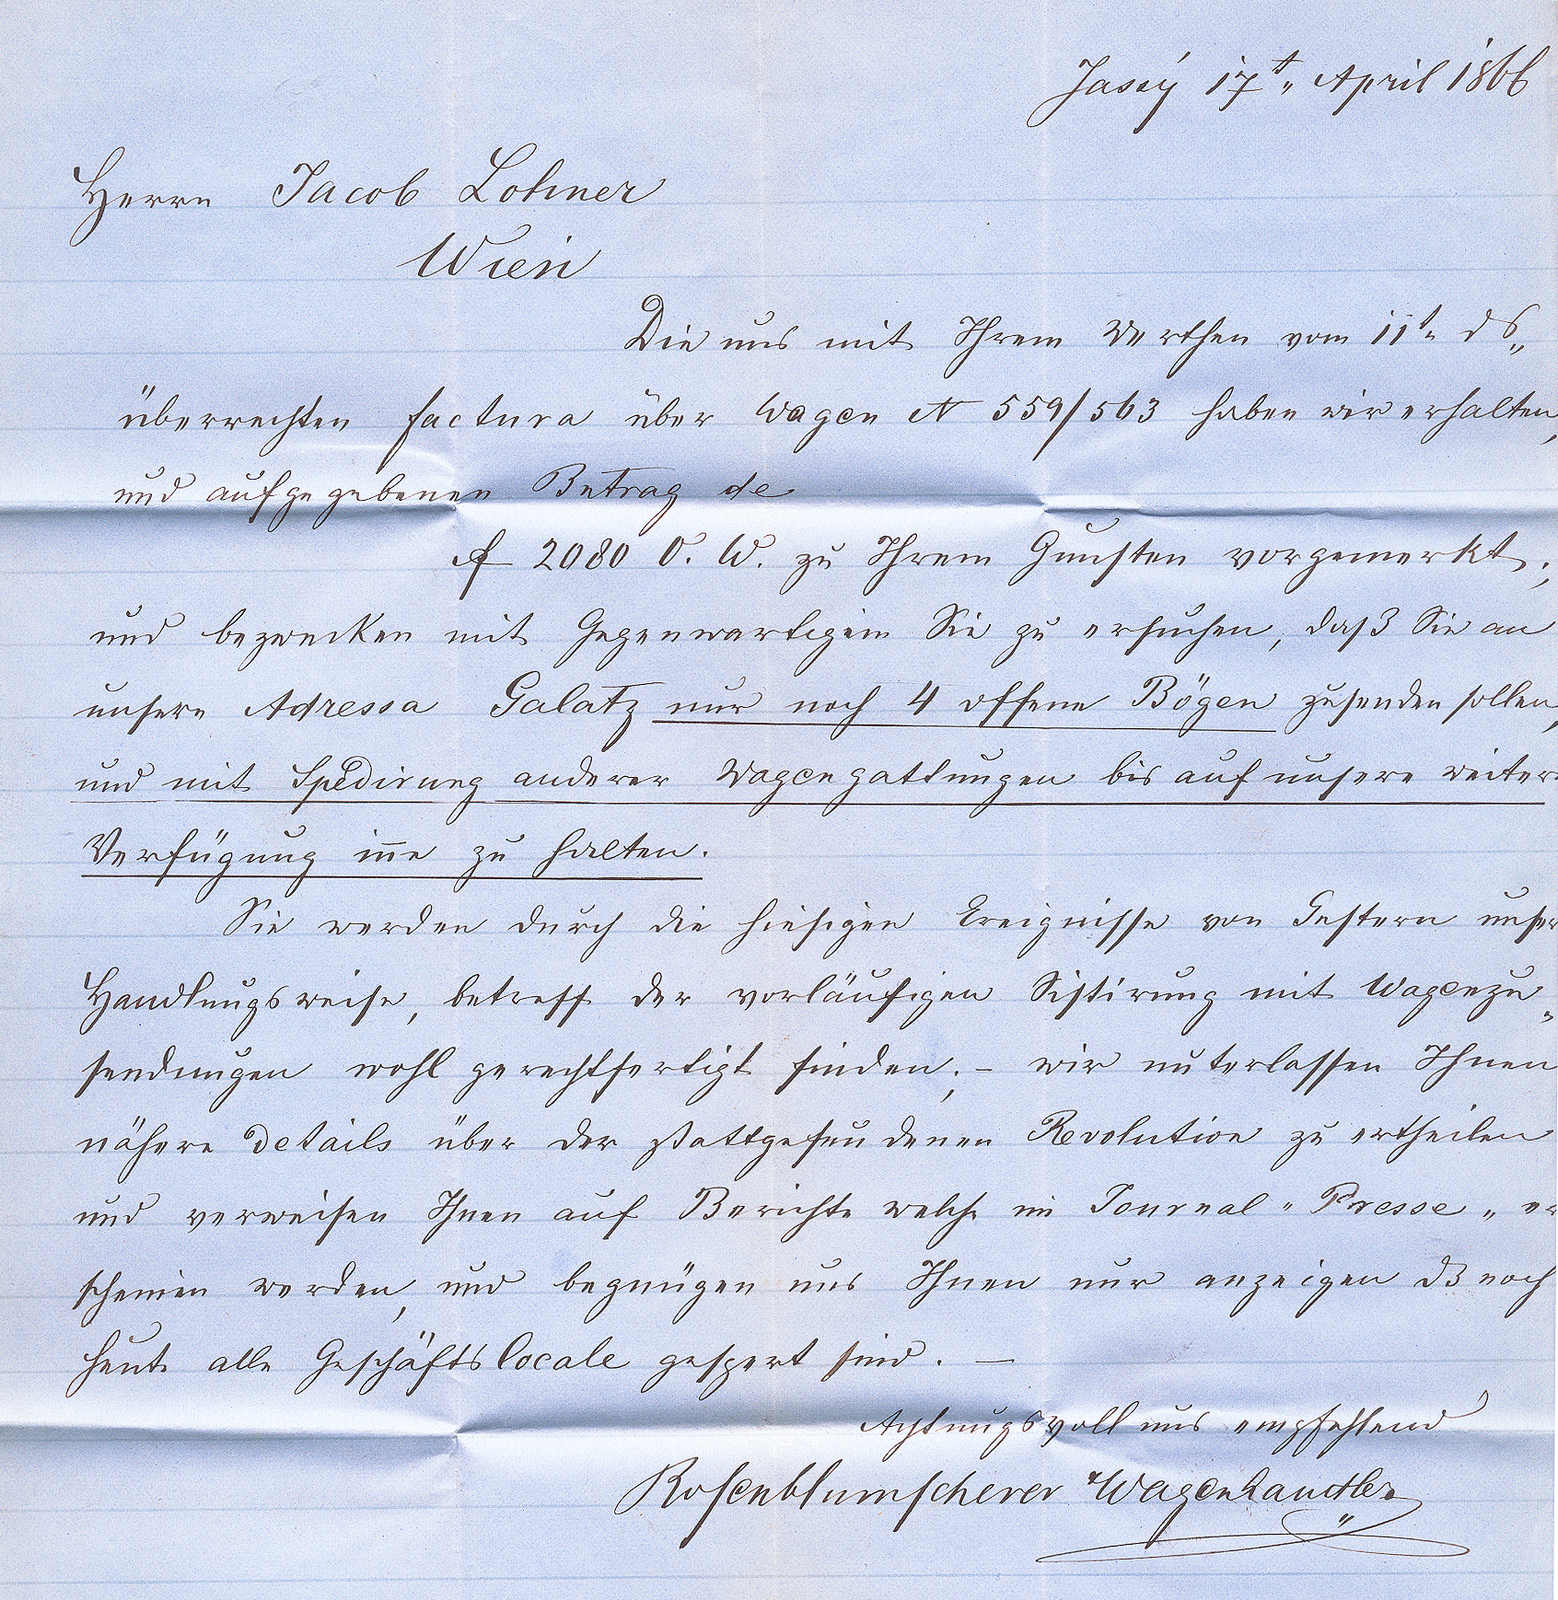 Jassý 17t„ April 1866
Herrn Jacob Lohner
Wien
Die uns mit Ihrem Werthen vom 11t„ ds„
überreichten factura über Wagen N 559/563 haben wir erhalten,
und aufgegebenen Betrag de
f 2080 Ö. W. zu Ihrem Gunsten vorgemerkt;
und bezwecken mit Gegenwärtigem Sie zu ersuchen, daß Sie an
unsere Adressa Galatz nur noch 4 offene Bögen zusenden sollen,
und mit Spedirung anderer Wagengattungen bis auf unsere weiter
Verfügung iñe zu halten.
Sie werden durch die hiesigen Ereignisse von Gestern unser
Handlungsweise, betreff der vorläufigen Sistirung mit Wagenzu„
sendungen wohl gerechtfertigt finden; – wir unterlassen Ihnen
nähere Details über der stattgefundenen Revolution zu ertheilen
und verweisen Ihnen auf Berichte welche im Journal „Presse„ er
scheinen werden, und begnügen uns Ihnen nur anzeigen dß noch
heute alle Geschäftslocale gespert sind. —
Achtungsvoll uns empfehlend
Rosenblumscherer Wagenhandler